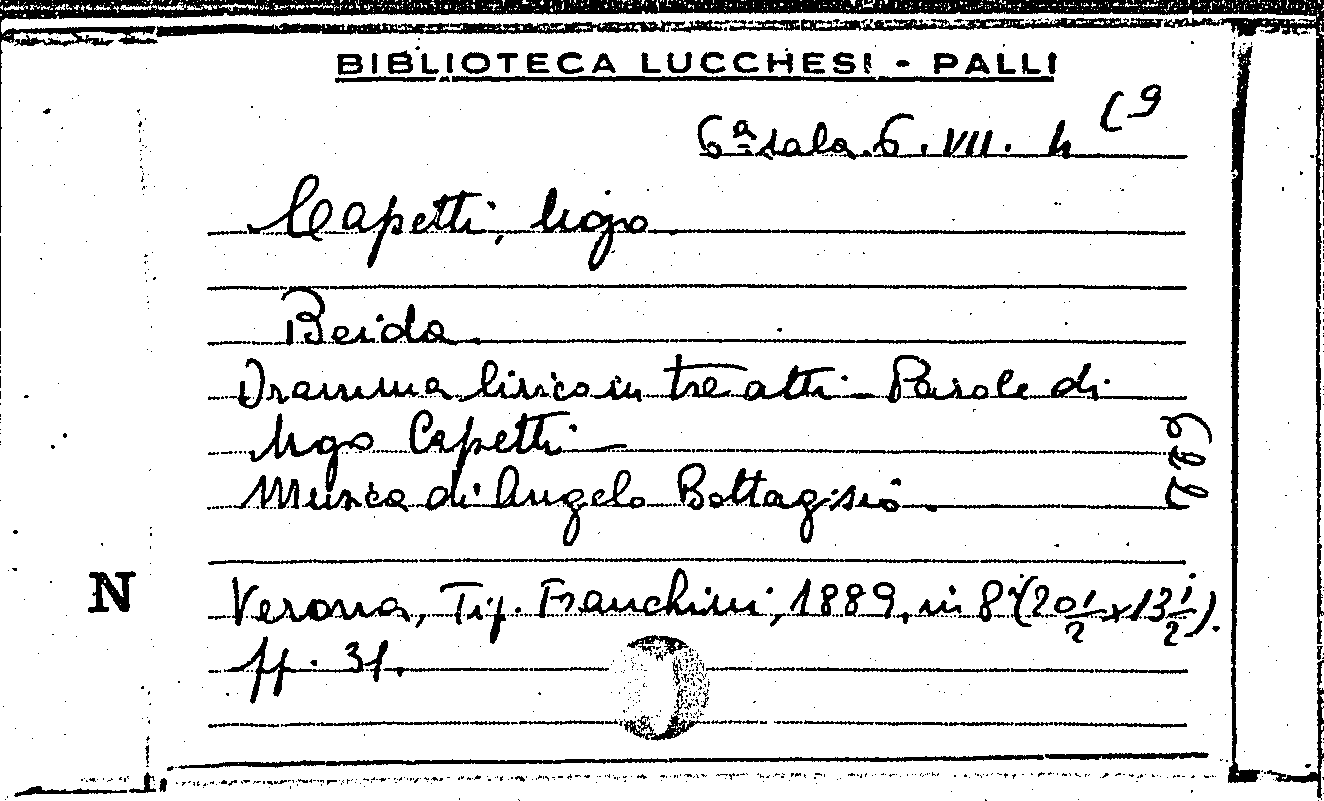 BIBLIOTECA LUCCHESI - PALLI
6ª sala. 6. VII. 4 (9
Capetti, Ugo.
Beida.
Dramma lirico in tre atti - Parole di
Ugo Capetti -
Musica di Angelo Bottagisio.
Verona, Tip. Franchini, 1889, in 8° (20 1/2 x 13 1/2).
pp. 31.
N